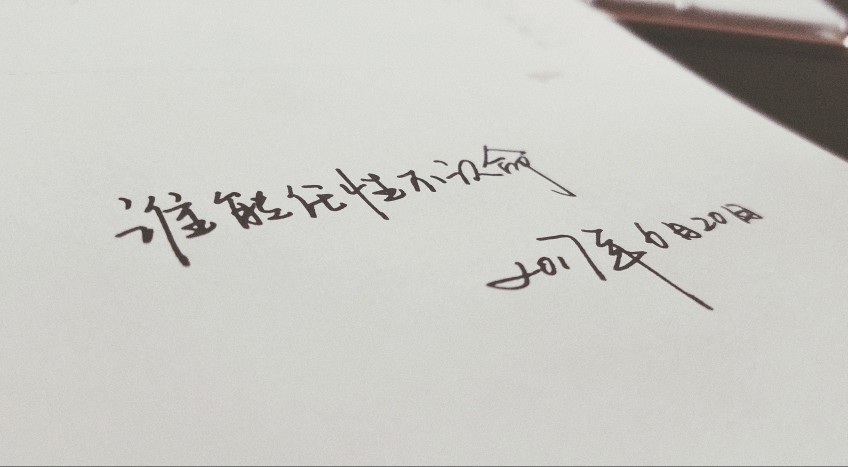 谁能任性不认命
2017年6月20日